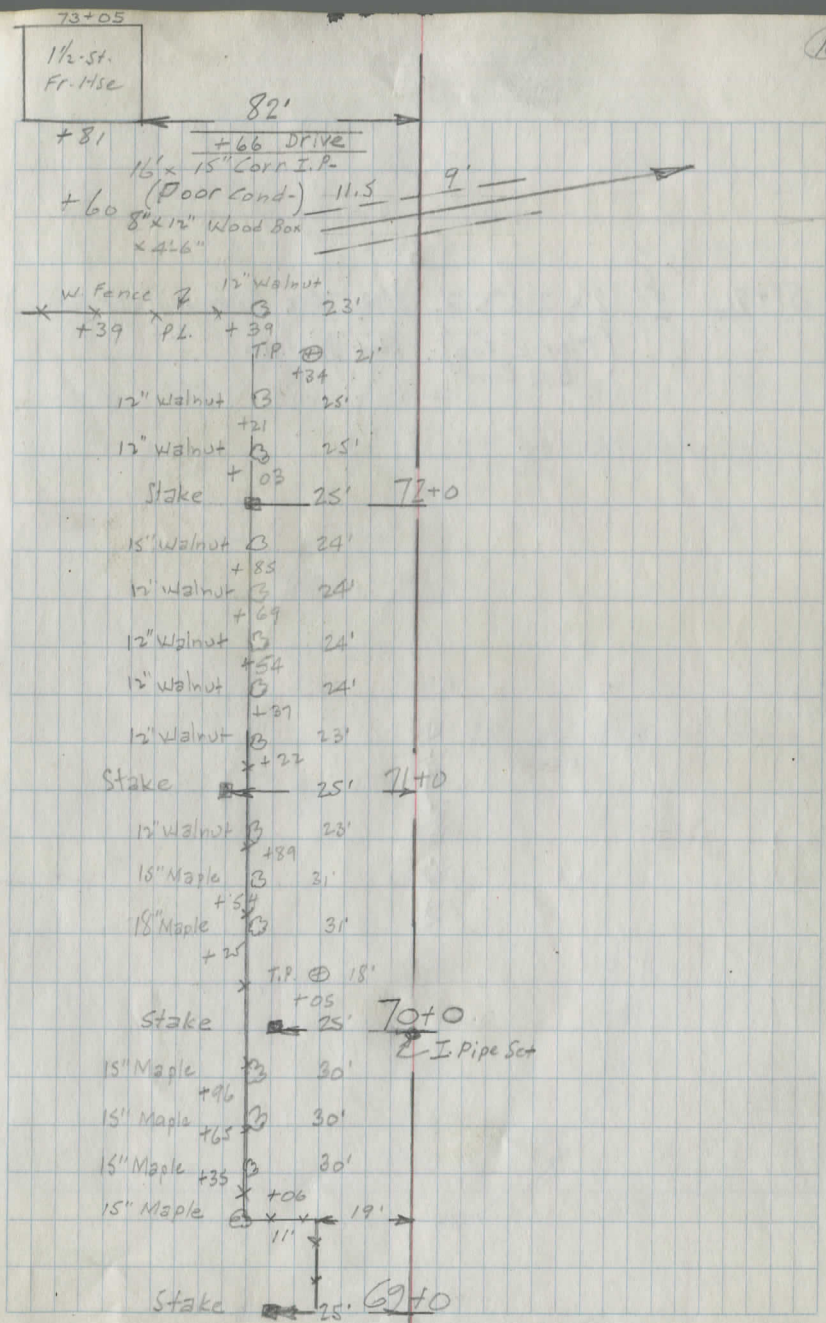 73+05
1½-St.
Fr. Hse
82'
+81
+66 Drive
16' x 15" Corr. I.P.
(Poor Cond-) 11.5 9'
+60
8" x 12" Wood Box
x 4'-6"
W. Fence 12" Walnut
23'
+39 P.L. +39
T.P. 21'
+34
12" Walnut 25'
+21
12" Walnut 25'
+03
Stake 25' 72+0
15" Walnut 24'
+85
12" Walnut 24'
+69
12" Walnut 24'
+54
12" Walnut 24'
+37
12" Walnut 23'
+22
Stake 25' 71+0
12" Walnut 23'
+89
15" Maple 31'
+54
18" Maple 31'
+25
T.P. 18'
+05
Stake 25' 70+0
I. Pipe Set
15" Maple 30'
+96
15" Maple 30'
+65
15" Maple 30'
+35
+06
15" Maple 19'
11'
Stake 25' 69+0